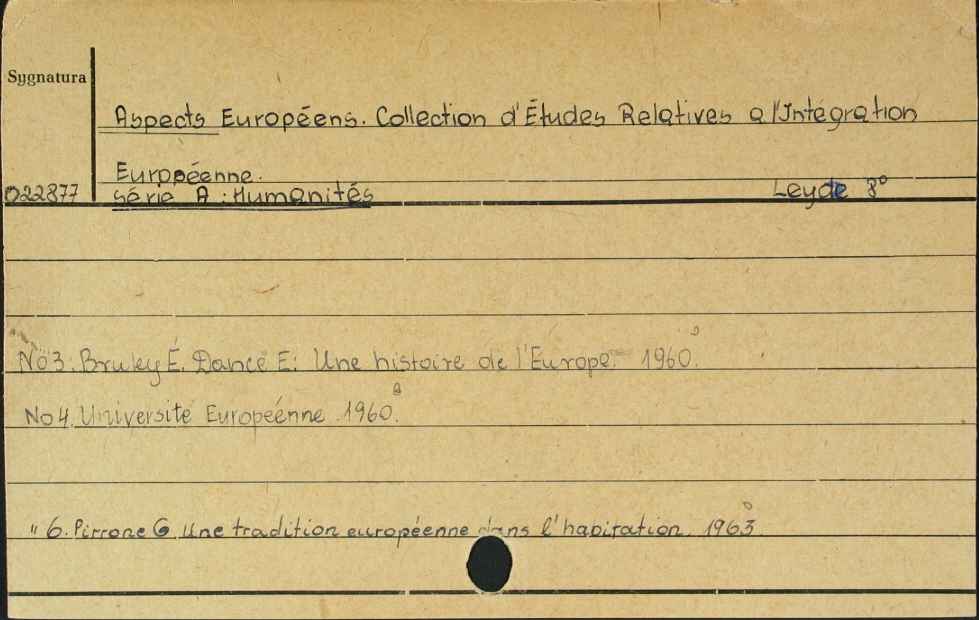 Sygnatura
Aspects Européens. Collection d'Études Relatives a l'Intégration
Européenne.
022877 série A : Humanités Leyde 8°
No 3. Bruley É. Dance E: Une histoire de l'Europe. 1960.
No 4. Université Européenne. 1960.
" 6. Pirrone G Une tradition européenne dans l'habitation. 1963